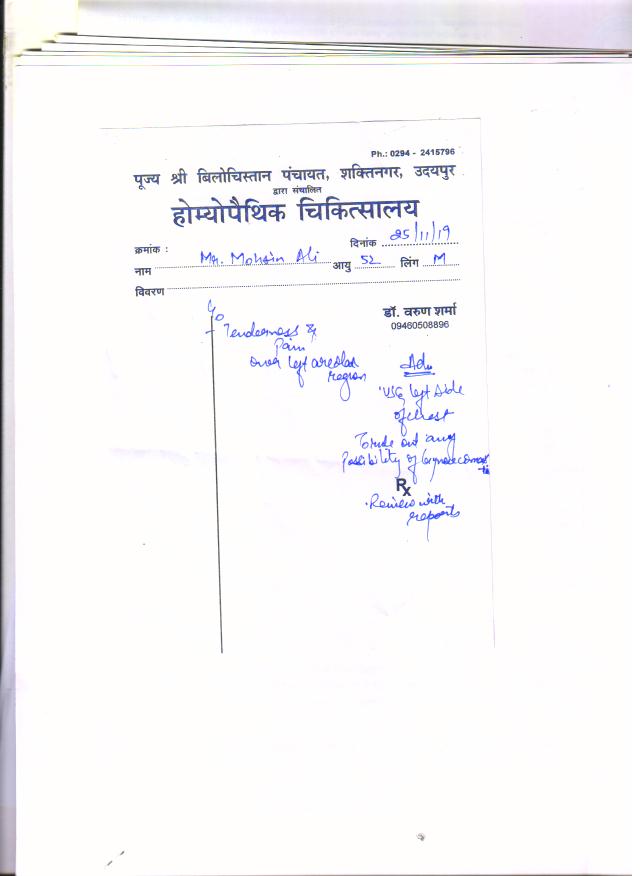 Ph.: 0294 - 2415796
पूज्य श्री बिलोचिस्तान पंचायत, शक्तिनगर, उदयपुर
द्वारा संचालित
होम्योपैथिक चिकित्सालय
क्रमांक :
दिनांक 25/11/19
नाम Mr. Mohsin Ali आयु 52 लिंग M
विवरण
डॉ. वरुण शर्मा
09460508896
C/o
Tenderness &
Pain
over left areolar
region
Adv
USG left side
of chest
To rule out any
Possibility of Gynaecomas
tia
Rx
Review with
reports